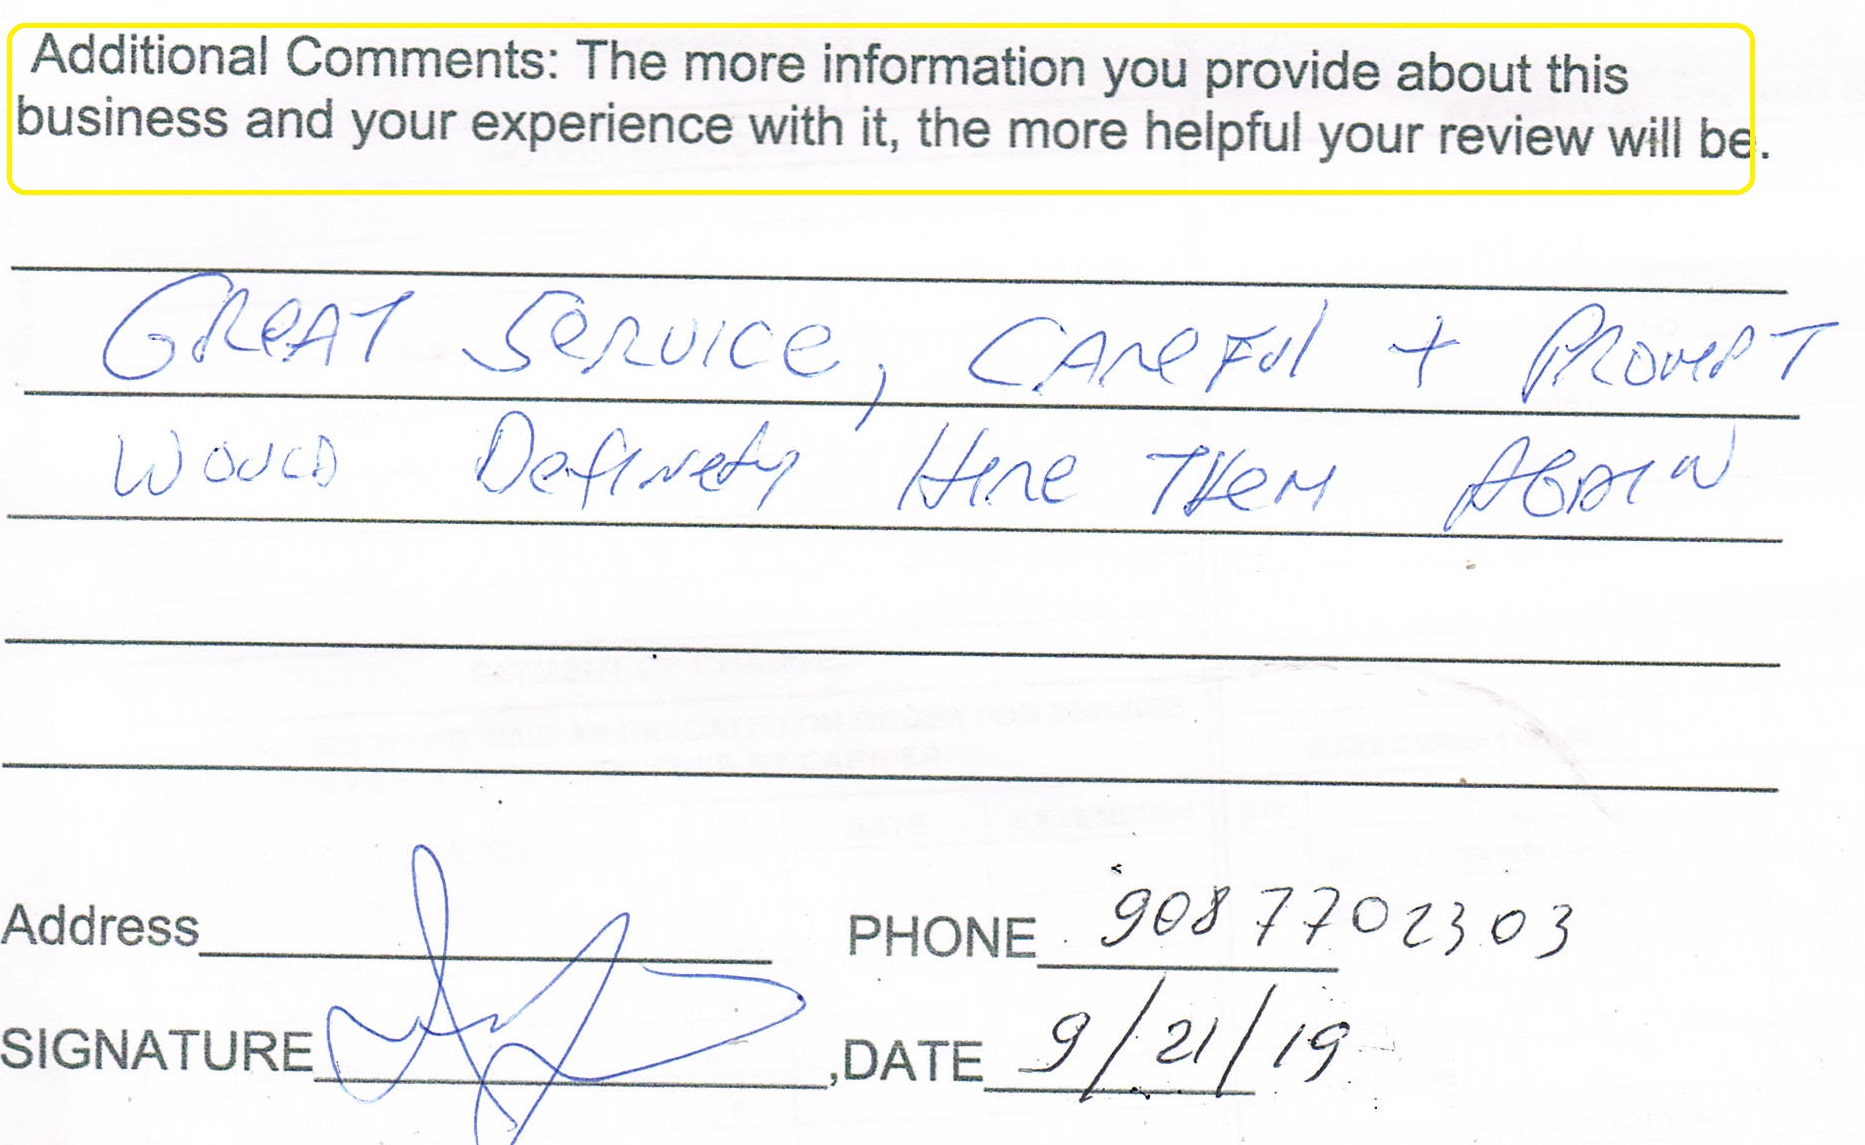 Additional Comments: The more information you provide about this
business and your experience with it, the more helpful your review will be.
GREAT SERVICE, CAREFUL + PROMPT
WOULD Definetly HIRE THEM AGAIN
Address
PHONE 9087702303
SIGNATURE ,DATE 9/21/19